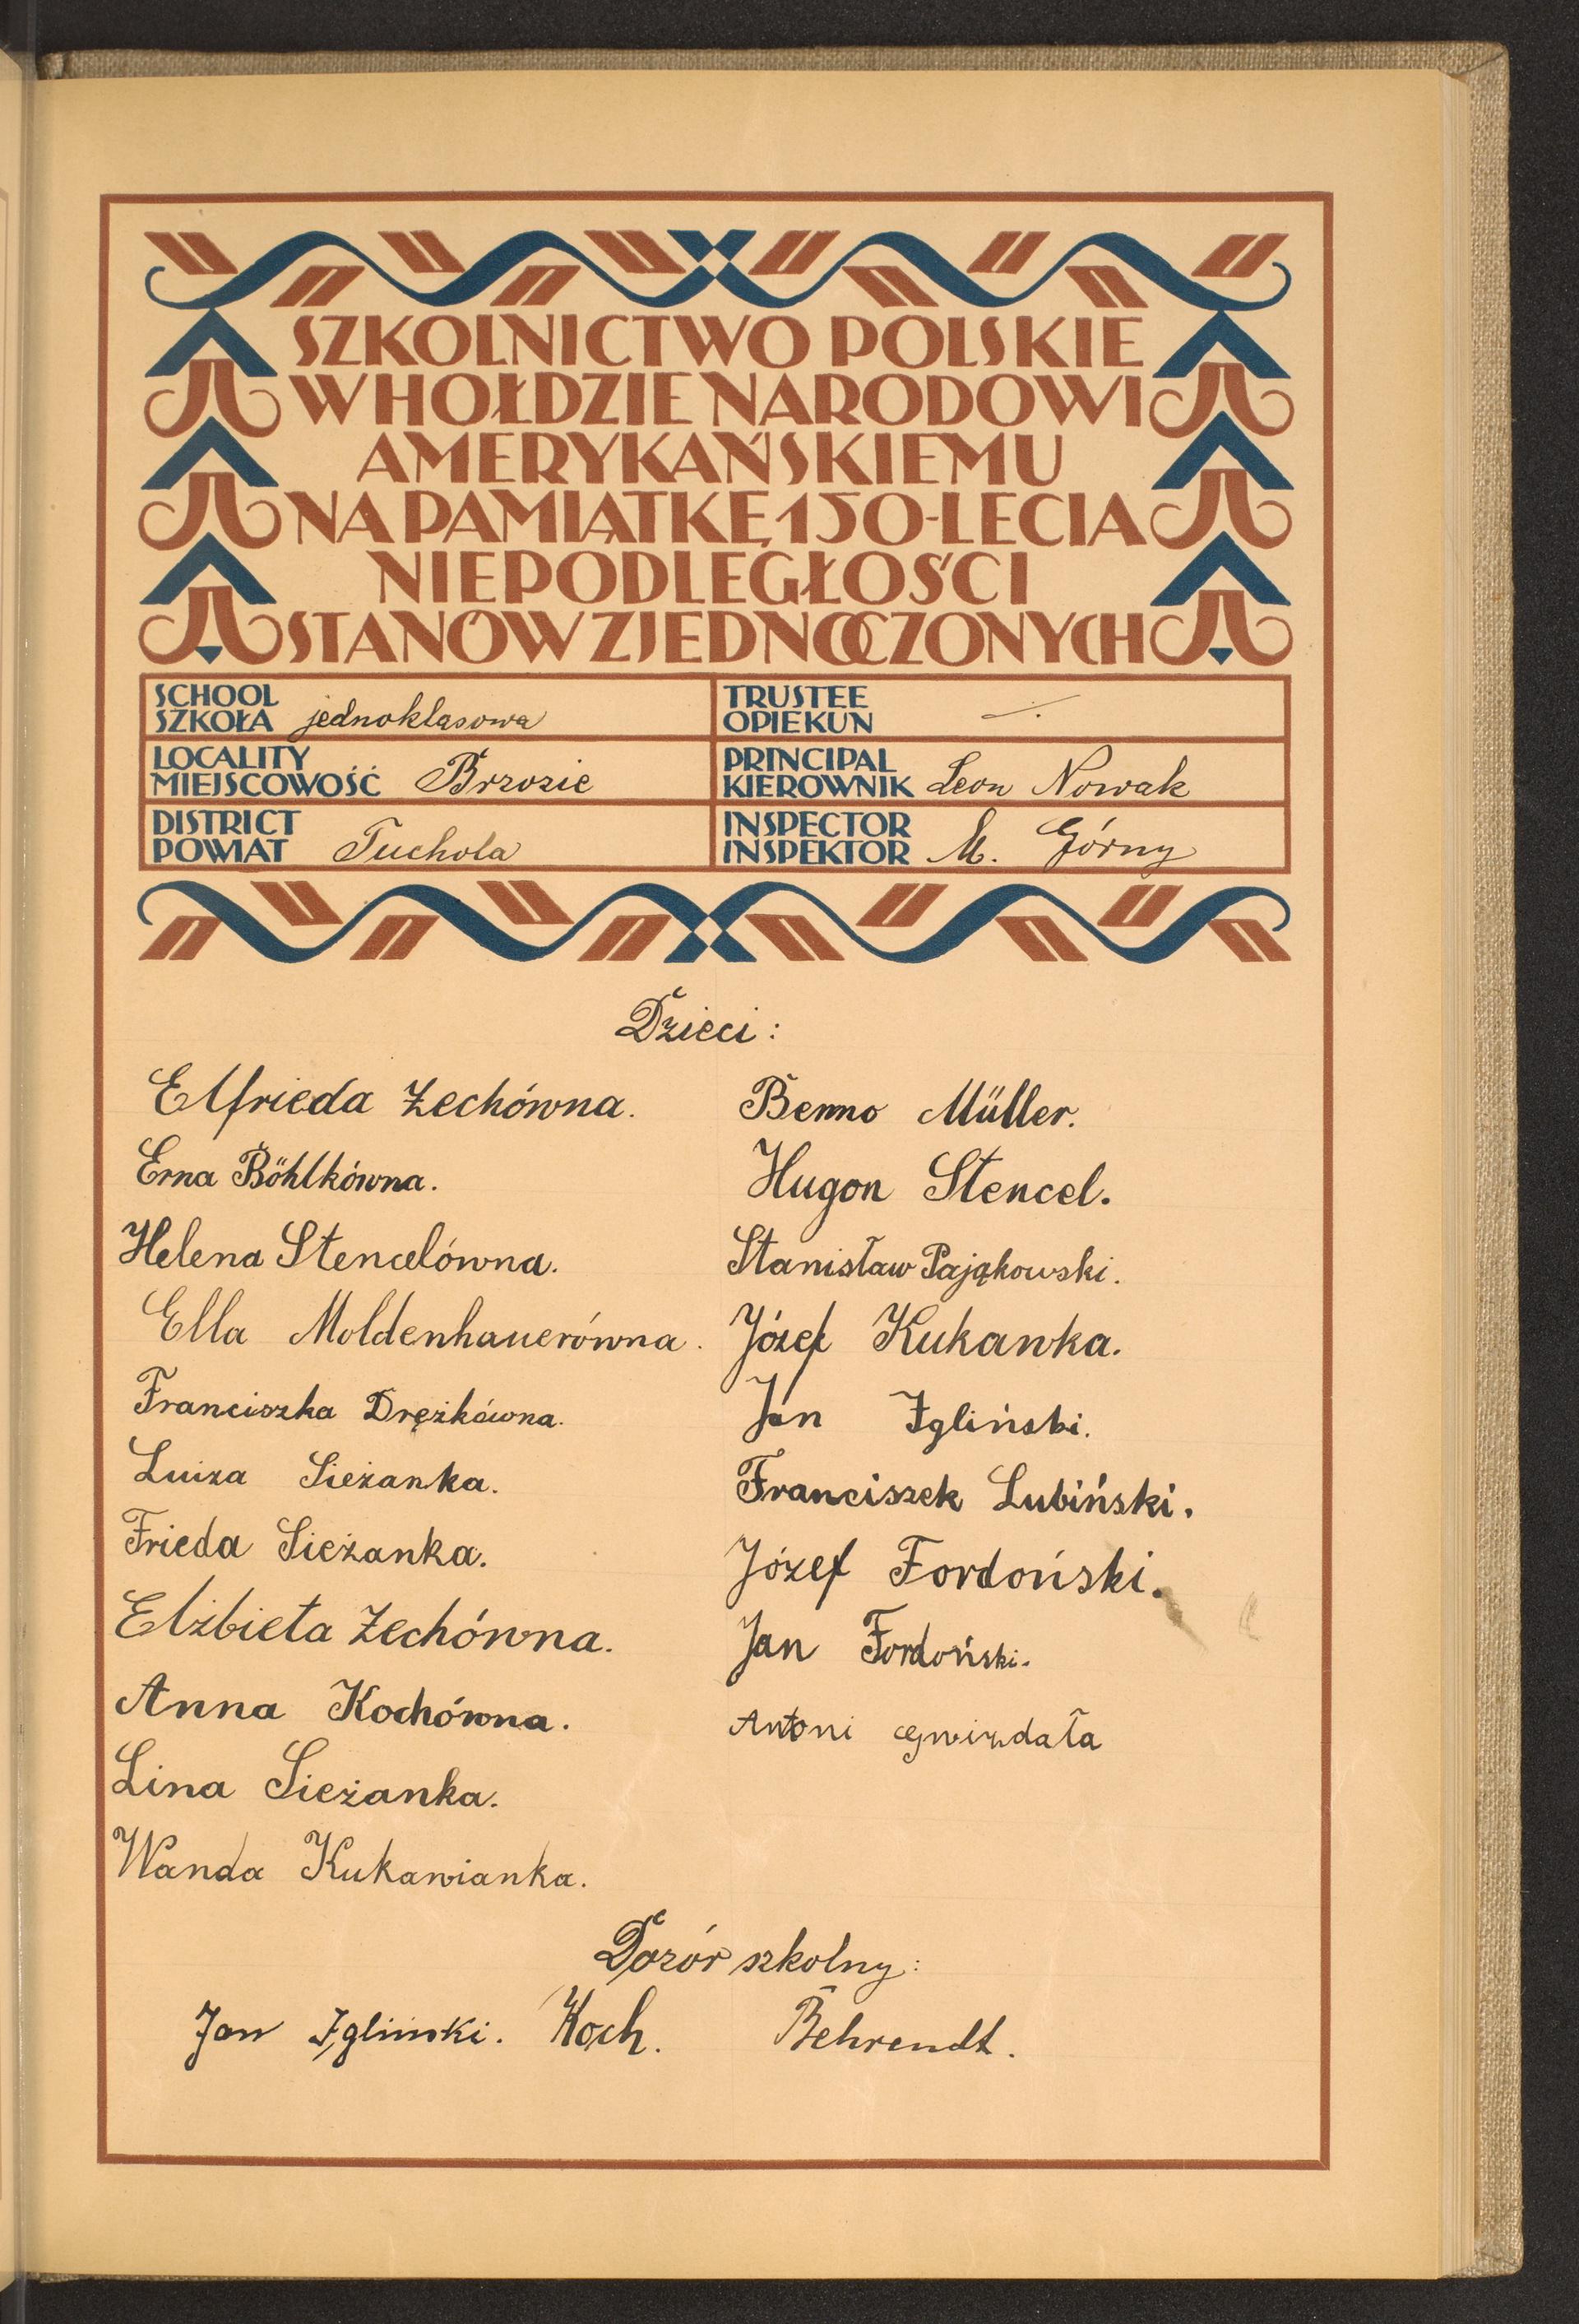 SZKOLNICTWO POLSKIE
W HOŁDZIE NARODOWI
AMERYKAŃSKIEMU
NA PAMIĄTKĘ 150-LECIA
NIEPODLEGŁOŚCI
STANÓW ZJEDNOCZONYCH
SCHOOL
SZKOŁA jednoklasowa
TRUSTEE
OPIEKUN —.
LOCALITY
MIEJSCOWOŚĆ Brzozie
PRINCIPAL
KIEROWNIK Leon Nowak
DISTRICT
POWIAT Tuchola
INSPECTOR
INSPEKTOR M. Górny
Dzieci:
Elfrieda Zechówna.
Erna Böhlkówna.
Helena Stencelówna.
Ella Moldenhauerówna.
Franciszka Drężkówna.
Luiza Sieżanka.
Frieda Sieżanka.
Elżbieta Zechówna.
Anna Kochówna.
Lina Sieżanka.
Wanda Kukawianka.
Benno Müller.
Hugon Stencel.
Stanisław Pająkowski.
Józef Kukawka.
Jan Igliński.
Franciszek Lubiński.
Józef Fordoński.
Jan Fordoński.
Antoni Gwizdała
Dozór szkolny:
Jan Igliński. Koch. Behrendt.